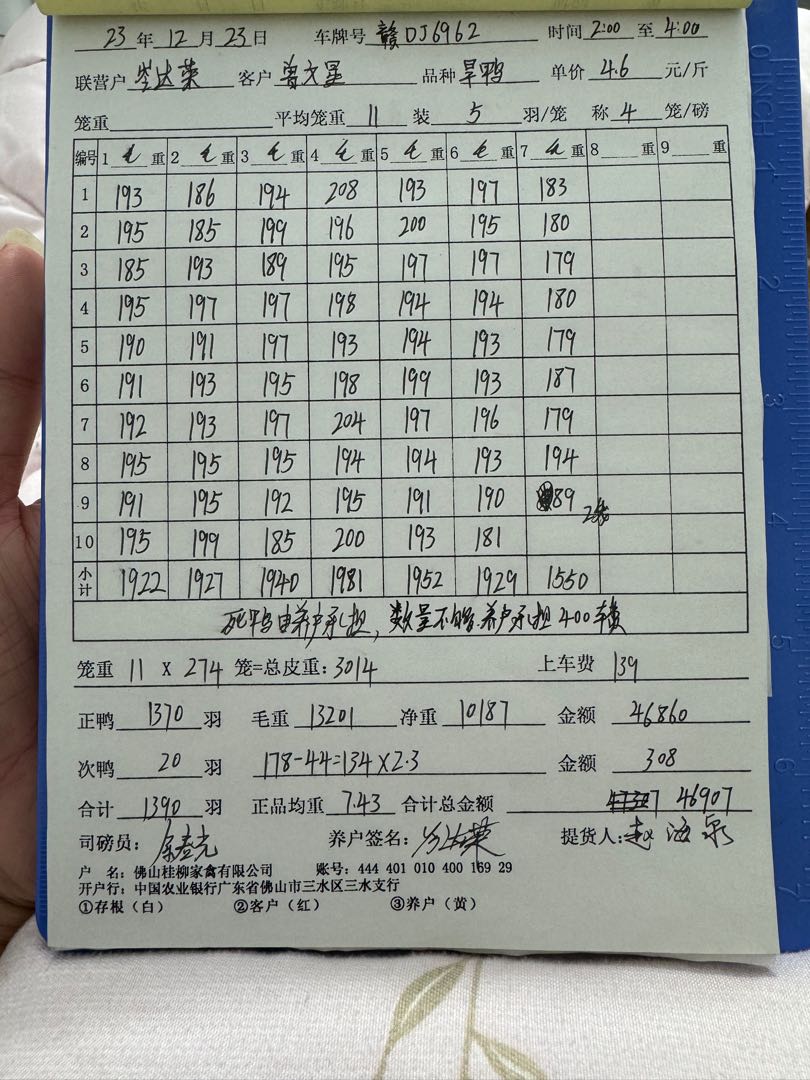 23 年 12 月 23 日 车牌号 赣DJ6962 时间 2:00 至 4:00
联营户 岑达荣 客户 曾文星 品种 旱鸭 单价 4.6 元/斤
笼重 平均笼重 11 装 5 羽/笼 称 4 笼/磅
编号 1 毛 重 2 毛 重 3 毛 重 4 毛 重 5 毛 重 6 毛 重 7 毛 重 8 重 9 重
1 193 186 194 208 193 197 183
2 195 185 199 196 200 195 180
3 185 193 189 195 197 197 179
4 195 197 197 198 194 194 180
5 190 191 197 193 194 193 179
6 191 193 195 198 199 193 187
7 192 193 197 204 197 196 179
8 195 195 195 194 194 193 194
9 191 195 192 195 191 190 89 2笼
10 195 199 185 200 193 181
小计 1922 1927 1940 1981 1952 1929 1550
死鸭由养户承担，数量不够.养户承担400车费
笼重 11 X 274 笼=总皮重：3014 上车费 139
正鸭 1370 羽 毛重 13201 净重 10187 金额 46860
次鸭 20 羽 178-44=134×2.3 金额 308
合计 1390 羽 正品均重 7.43 合计总金额 46907
司磅员： 养户签名： 提货人：赵海泉
户 名：佛山桂柳家禽有限公司 账号：444 401 010 400 169 29
开户行：中国农业银行广东省佛山市三水区三水支行
①存根（白） ②客户（红） ③养户（黄）